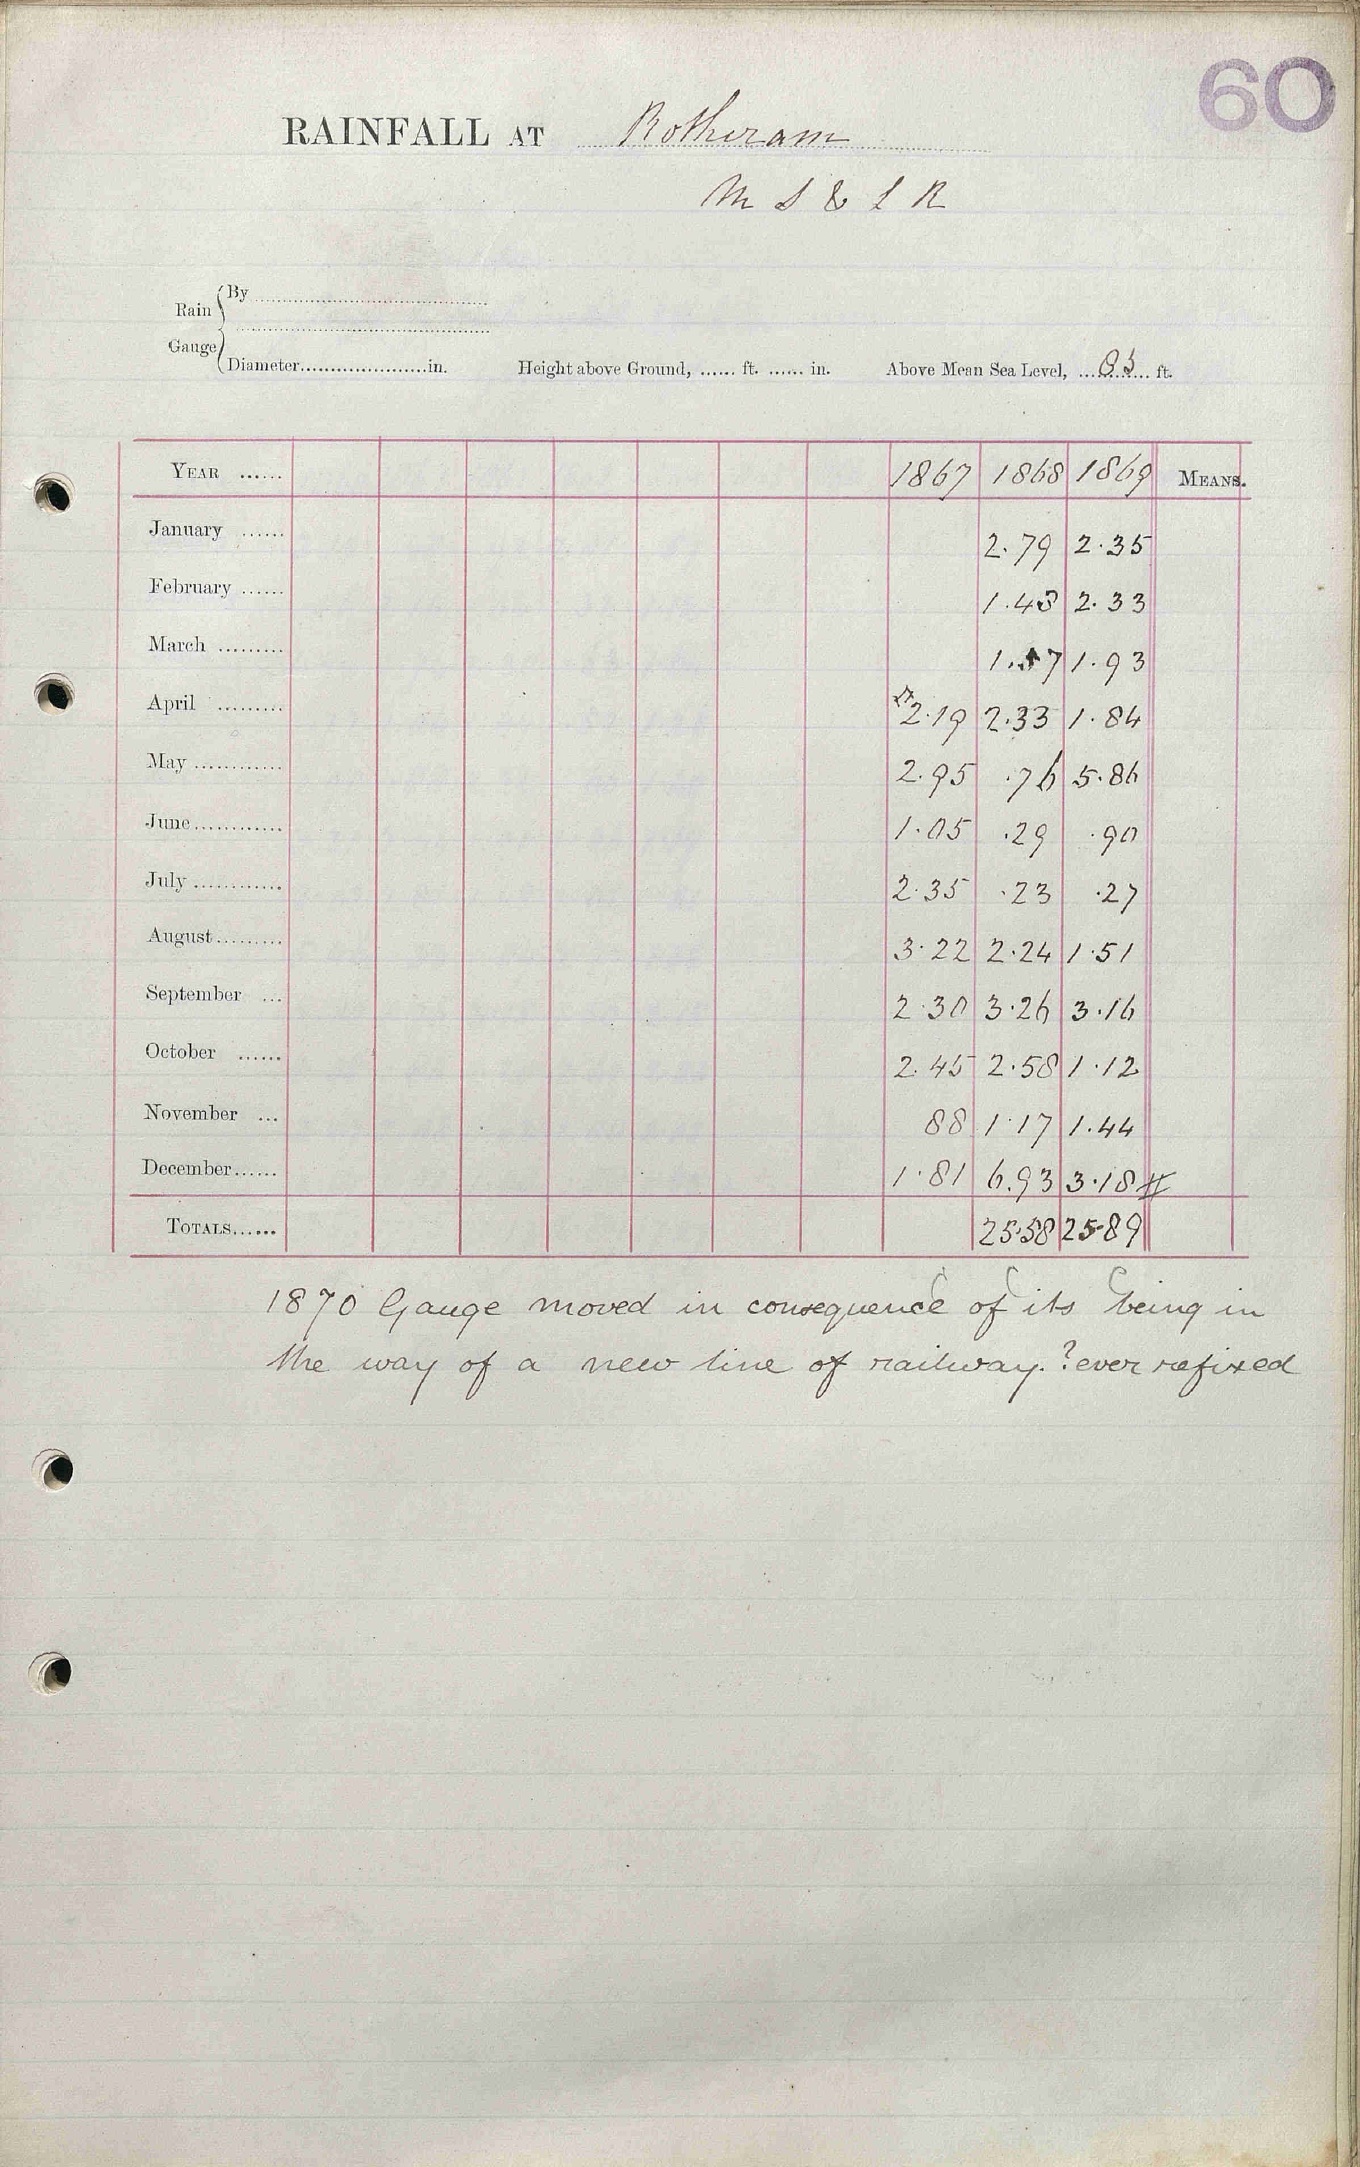 60
RAINFALL AT Rotheram
M S & L R
Rain Gauge
By
Diameter.....................in. Height above Ground, ...... ft. ...... in. Above Mean Sea Level, ............ ft.
YEAR ...... 1867 1868 1869 MEANS.
January ...... 2.79 2.35
February ...... 1.43 2.33
March ......... 1.57 1.93
April ......... 2.19 2.33 1.84
May ............ 2.95 .76 5.86
June............ 1.05 .29 .90
July ............ 2.35 .23 .27
August......... 3.22 2.24 1.51
September ... 2.30 3.26 3.16
October ...... 2.45 2.58 1.12
November ... 88 1.17 1.44
December...... 1.81 6.93 3.18 #
TOTALS...... 25.58 25.89
1870 Gauge moved in consequence of its being in
the way of a new line of railway. ? ever refixed